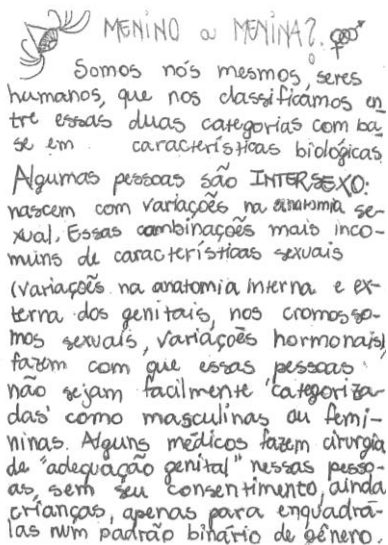 MENINO ou MENINA?
Somos nós mesmos, seres
humanos, que nos classificamos en
tre essas duas categorias com ba_
se em características biológicas
Algumas pessoas são INTERSEXO:
nascem com variações na anatomia se-
xual. Essas combinações mais inco-
muns de características sexuais
(variações na anatomia interna e ex-
terna dos genitais, nos cromosso-
mos sexuais, variações hormonais)
fazem com que essas pessoas
não sejam facilmente 'categoriza-
das' como masculinas ou femi-
ninas. Alguns médicos fazem cirurgia
de "adequação genital" nessas pesso-
as, sem seu consentimento, ainda
crianças, apenas para enquadrá-
las num padrão binário de gênero.